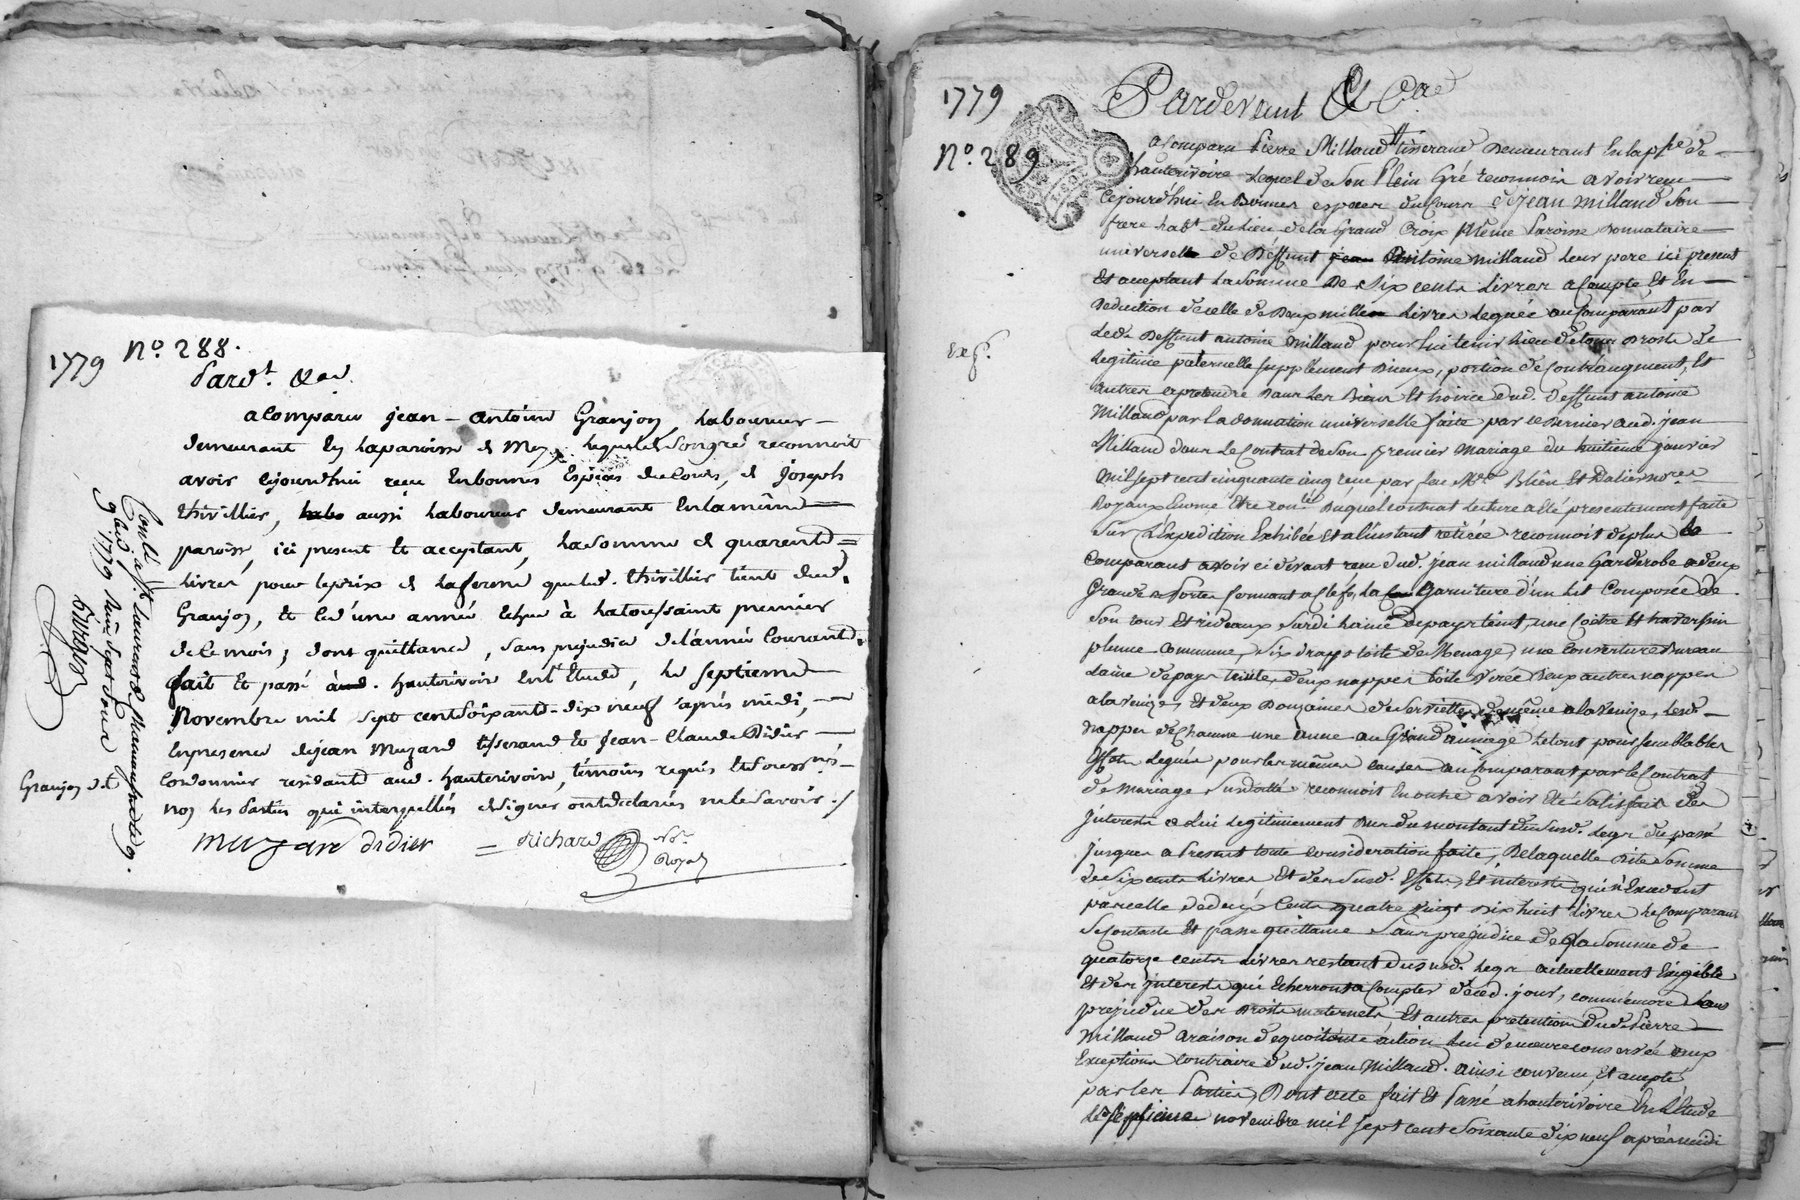 1779
N.º 288.
Pard.t &a.
a Comparu jean-antoine Granjon, laboureur
demeurant en la paroisse de Meys, lequel de son gré reconnoit
avoir cejourdhui reçu en bonnes Espèces de cours, de Joseph
thivillier, aussi laboureur demeurant en la même
paroisse, ici present et acceptant, la somme de quarente
livres, pour le prix de la ferme que led. thivillier tient dud.
Granjon, et ce d'une année echue à la toussaint premier
de ce mois, dont quittance, sans prejudice de l'année Courante.
fait et passé aud. hauterivoire en l'Etude, le septieme
Novembre mil sept cent soixante-dix neuf après midi,
en presence de jean Muzard tisserand et Jean-Claude Didier
Cordonnier residants aud. hauterivoire, témoins requis et soussignés
non les Parties qui interpellées de signer ont declaré ne le savoir ./
Muzard didier = Richard No.re Royal
Contlé à St. laurent de Chamousset le 9
9bre 1779 Reçu sept sous
Granjon d.t
1779
N.º 289.
Pardevant &a
a Comparu Pierre Millaud tisserand demeurant en la p.sse de
hauterivoire lequel de son Plein Gré reconnoit avoir reçu
Cejourd'hui En bonnes especes du Cours de jean Millaud son
frere hab.t au lieu de la Grand Croix même Paroisse donnataire
universelle de deffunt Antoine Millaud leur pere ici present
Et acceptant la somme de six cents livres a Compte Et En
deduction de celle de deux mille livres leguée au Comparant par
led. deffunt antoine Millaud pour lui tenir lieu de tous droits de
legitime paternelle supplement d'iceux, portion d'e contraugment, Et
autres a pretendre dans les biens Et hoirie dud. deffunt antoine
Millaud par la donnation universelle faite par ce dernier aud. jean
Millaud dans le Contrat de son premier mariage du huitieme janvier
mil sept cent cinquante cinq reçu par feu Me. Blein Et Dalier no.res
Royaux duquel contrat lecture a été presentement faite
sur l'Expedition Exhibée Et a l'instant retirée reconnoit de plus le
Comparant avoir ci devant reçu dud. jean millaud une Garderobe a deux
Grandes Portes fermant a Clefs, la Garniture d'un lit Composée de
son tour Et rideaux de pays teint, une Coitre Et traversin
plume Commune, six draps toile de Menage, une Couverture
laine de pays teinte, deux nappes toile deux autres nappes
a la venize, Et deux Douzaines de serviettes de même a la venize, lesd.
nappes de Chacune une aune au Grand aunage le tout pour semblables
Effets legués pour les mêmes causes au Comparant par le Contrat
de Mariage susdatté reconnoit En outre avoir Eté satisfait des
jnterets a lui legitimement dus du montant du susd. legs du passé
jusques a Present toute consideration faite, De laquelle dite somme
de six cents livres Et des susd. Effets, Et interets qui n'Excedent
pas celle de deux Cents quatre vingt dix huit livres le Comparant
se Contente Et passe quittance sans prejudice de la somme de
quatorze cents livres restant du susd. legs actuellement Exigible
Et des jnterets qui Echerront a Compter de ced. jour, comm'encore sans
prejudice des Droits maternels Et autres pretentions dud. Pierre
Millaud a raison de quoi toute action lui demeure conservée aux
Exceptions Contraires dud. jean Millaud. ainsi convenu, Et accepté
par les Parties, Dont acte fait Et Passé a hauterivoire En l'Etude
le septieme novembre mil sept cent Soixante dix neuf après midi